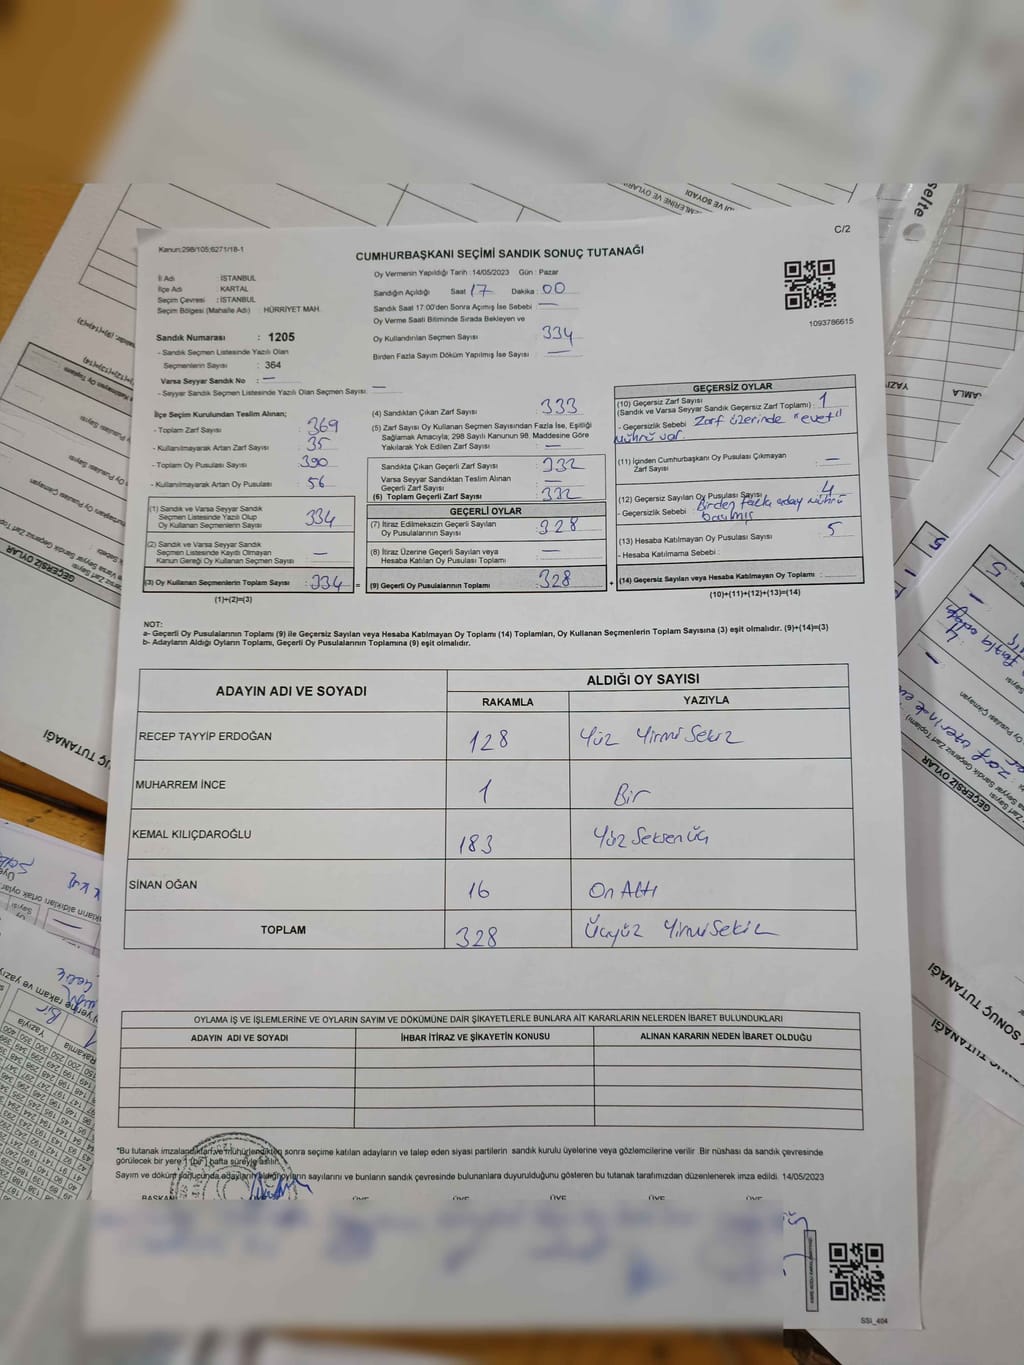 C/2
Kanun:298/105;6271/18-1
CUMHURBAŞKANI SEÇİMİ SANDIK SONUÇ TUTANAĞI
1093786615
İl Adı : İSTANBUL
İlçe Adı : KARTAL
Seçim Çevresi : İSTANBUL
Seçim Bölgesi (Mahalle Adı) : HÜRRİYET MAH.
Sandık Numarası : 1205
- Sandık Seçmen Listesinde Yazılı Olan
Seçmenlerin Sayısı : 364
Varsa Seyyar Sandık No : —
- Seyyar Sandık Seçmen Listesinde Yazılı Olan Seçmen Sayısı : —
Oy Vermenin Yapıldığı Tarih : 14/05/2023 Gün : Pazar
Sandığın Açıldığı Saat 17 Dakika : 00
Sandık Saat 17:00'den Sonra Açılmış İse Sebebi : —
Oy Verme Saati Bitiminde Sırada Bekleyen ve
Oy Kullandırılan Seçmen Sayısı : 334
Birden Fazla Sayım Döküm Yapılmış İse Sayısı : —
İlçe Seçim Kurulundan Teslim Alınan;
- Toplam Zarf Sayısı : 369
- Kullanılmayarak Artan Zarf Sayısı : 35
- Toplam Oy Pusulası Sayısı : 390
- Kullanılmayarak Artan Oy Pusulası : 56
(1) Sandık ve Varsa Seyyar Sandık
Seçmen Listesinde Yazılı Olup
Oy Kullanan Seçmenlerin Sayısı : 334
(2) Sandık ve Varsa Seyyar Sandık
Seçmen Listesinde Kayıtlı Olmayan
Kanun Gereği Oy Kullanan Seçmen Sayısı : —
(3) Oy Kullanan Seçmenlerin Toplam Sayısı : 334 =
(1)+(2)=(3)
(4) Sandıktan Çıkan Zarf Sayısı : 333
(5) Zarf Sayısı Oy Kullanan Seçmen Sayısından Fazla İse, Eşitliği
Sağlamak Amacıyla; 298 Sayılı Kanunun 98. Maddesine Göre
Yakılarak Yok Edilen Zarf Sayısı : —
Sandıkta Çıkan Geçerli Zarf Sayısı : 332
Varsa Seyyar Sandıktan Teslim Alınan
Geçerli Zarf Sayısı : —
(6) Toplam Geçerli Zarf Sayısı : 332
GEÇERLİ OYLAR
(7) İtiraz Edilmeksizin Geçerli Sayılan
Oy Pusulalarının Sayısı : 328
(8) İtiraz Üzerine Geçerli Sayılan veya
Hesaba Katılan Oy Pusulası Toplamı : —
(9) Geçerli Oy Pusulalarının Toplamı : 328 +
GEÇERSİZ OYLAR
(10) Geçersiz Zarf Sayısı : 1
(Sandık ve Varsa Seyyar Sandık Geçersiz Zarf Toplamı)
- Geçersizlik Sebebi : Zarf üzerinde "evet"
mührü var.
(11) İçinden Cumhurbaşkanı Oy Pusulası Çıkmayan
Zarf Sayısı : —
(12) Geçersiz Sayılan Oy Pusulası Sayısı : 4
- Geçersizlik Sebebi : Birden fazla aday mührü
basılmış
(13) Hesaba Katılmayan Oy Pusulası Sayısı : 5
- Hesaba Katılmama Sebebi :
(14) Geçersiz Sayılan veya Hesaba Katılmayan Oy Toplamı :
(10)+(11)+(12)+(13)=(14)
NOT:
a- Geçerli Oy Pusulalarının Toplamı (9) ile Geçersiz Sayılan veya Hesaba Katılmayan Oy Toplamı (14) Toplamları, Oy Kullanan Seçmenlerin Toplam Sayısına (3) eşit olmalıdır. (9)+(14)=(3)
b- Adayların Aldığı Oyların Toplamı, Geçerli Oy Pusulalarının Toplamına (9) eşit olmalıdır.
ADAYIN ADI VE SOYADI
ALDIĞI OY SAYISI
RAKAMLA YAZIYLA
RECEP TAYYİP ERDOĞAN 128 Yüz Yirmi Sekiz
MUHARREM İNCE 1 Bir
KEMAL KILIÇDAROĞLU 183 Yüz Seksen Üç
SİNAN OĞAN 16 On Altı
TOPLAM 328 Üçyüz Yirmi Sekiz
OYLAMA İŞ VE İŞLEMLERİNE VE OYLARIN SAYIM VE DÖKÜMÜNE DAİR ŞİKAYETLERLE BUNLARA AİT KARARLARIN NELERDEN İBARET BULUNDUKLARI
ADAYIN ADI VE SOYADI İHBAR İTİRAZ VE ŞİKAYETİN KONUSU ALINAN KARARIN NEDEN İBARET OLDUĞU
*Bu tutanak imzalandıktan ve mühürlendikten sonra seçime katılan adayların ve talep eden siyasi partilerin sandık kurulu üyelerine veya gözlemcilerine verilir. Bir nüshası da sandık çevresinde
görülecek bir yere 1 (bir) hafta süreyle asılır.
Sayım ve döküm sonucunda adayların aldığı oyların sayılarını ve bunların sandık çevresinde bulunanlara duyurulduğunu gösteren bu tutanak tarafımızdan düzenlenerek imza edildi. 14/05/2023
BAŞKAN ÜYE ÜYE ÜYE ÜYE ÜYE
SSI_404